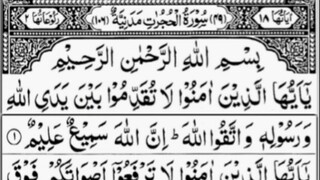 اٰيَاتُهَا ١٨ (٤٩) سُوْرَةُ الْحُجُرٰتِ مَدَنِيَّةٌ (١٠٦) رُكُوْعَاتُهَا ٢
بِسْمِ اللّٰهِ الرَّحْمٰنِ الرَّحِيْمِ
يٰۤاَيُّهَا الَّذِيْنَ اٰمَنُوْا لَا تُقَدِّمُوْا بَيْنَ يَدَيِ اللّٰهِ
وَرَسُوْلِهٖ وَاتَّقُوا اللّٰهَ ؕ اِنَّ اللّٰهَ سَمِيْعٌ عَلِيْمٌ ۝١
يٰۤاَيُّهَا الَّذِيْنَ اٰمَنُوْا لَا تَرْفَعُوْۤا اَصْوَاتَكُمْ فَوْقَ